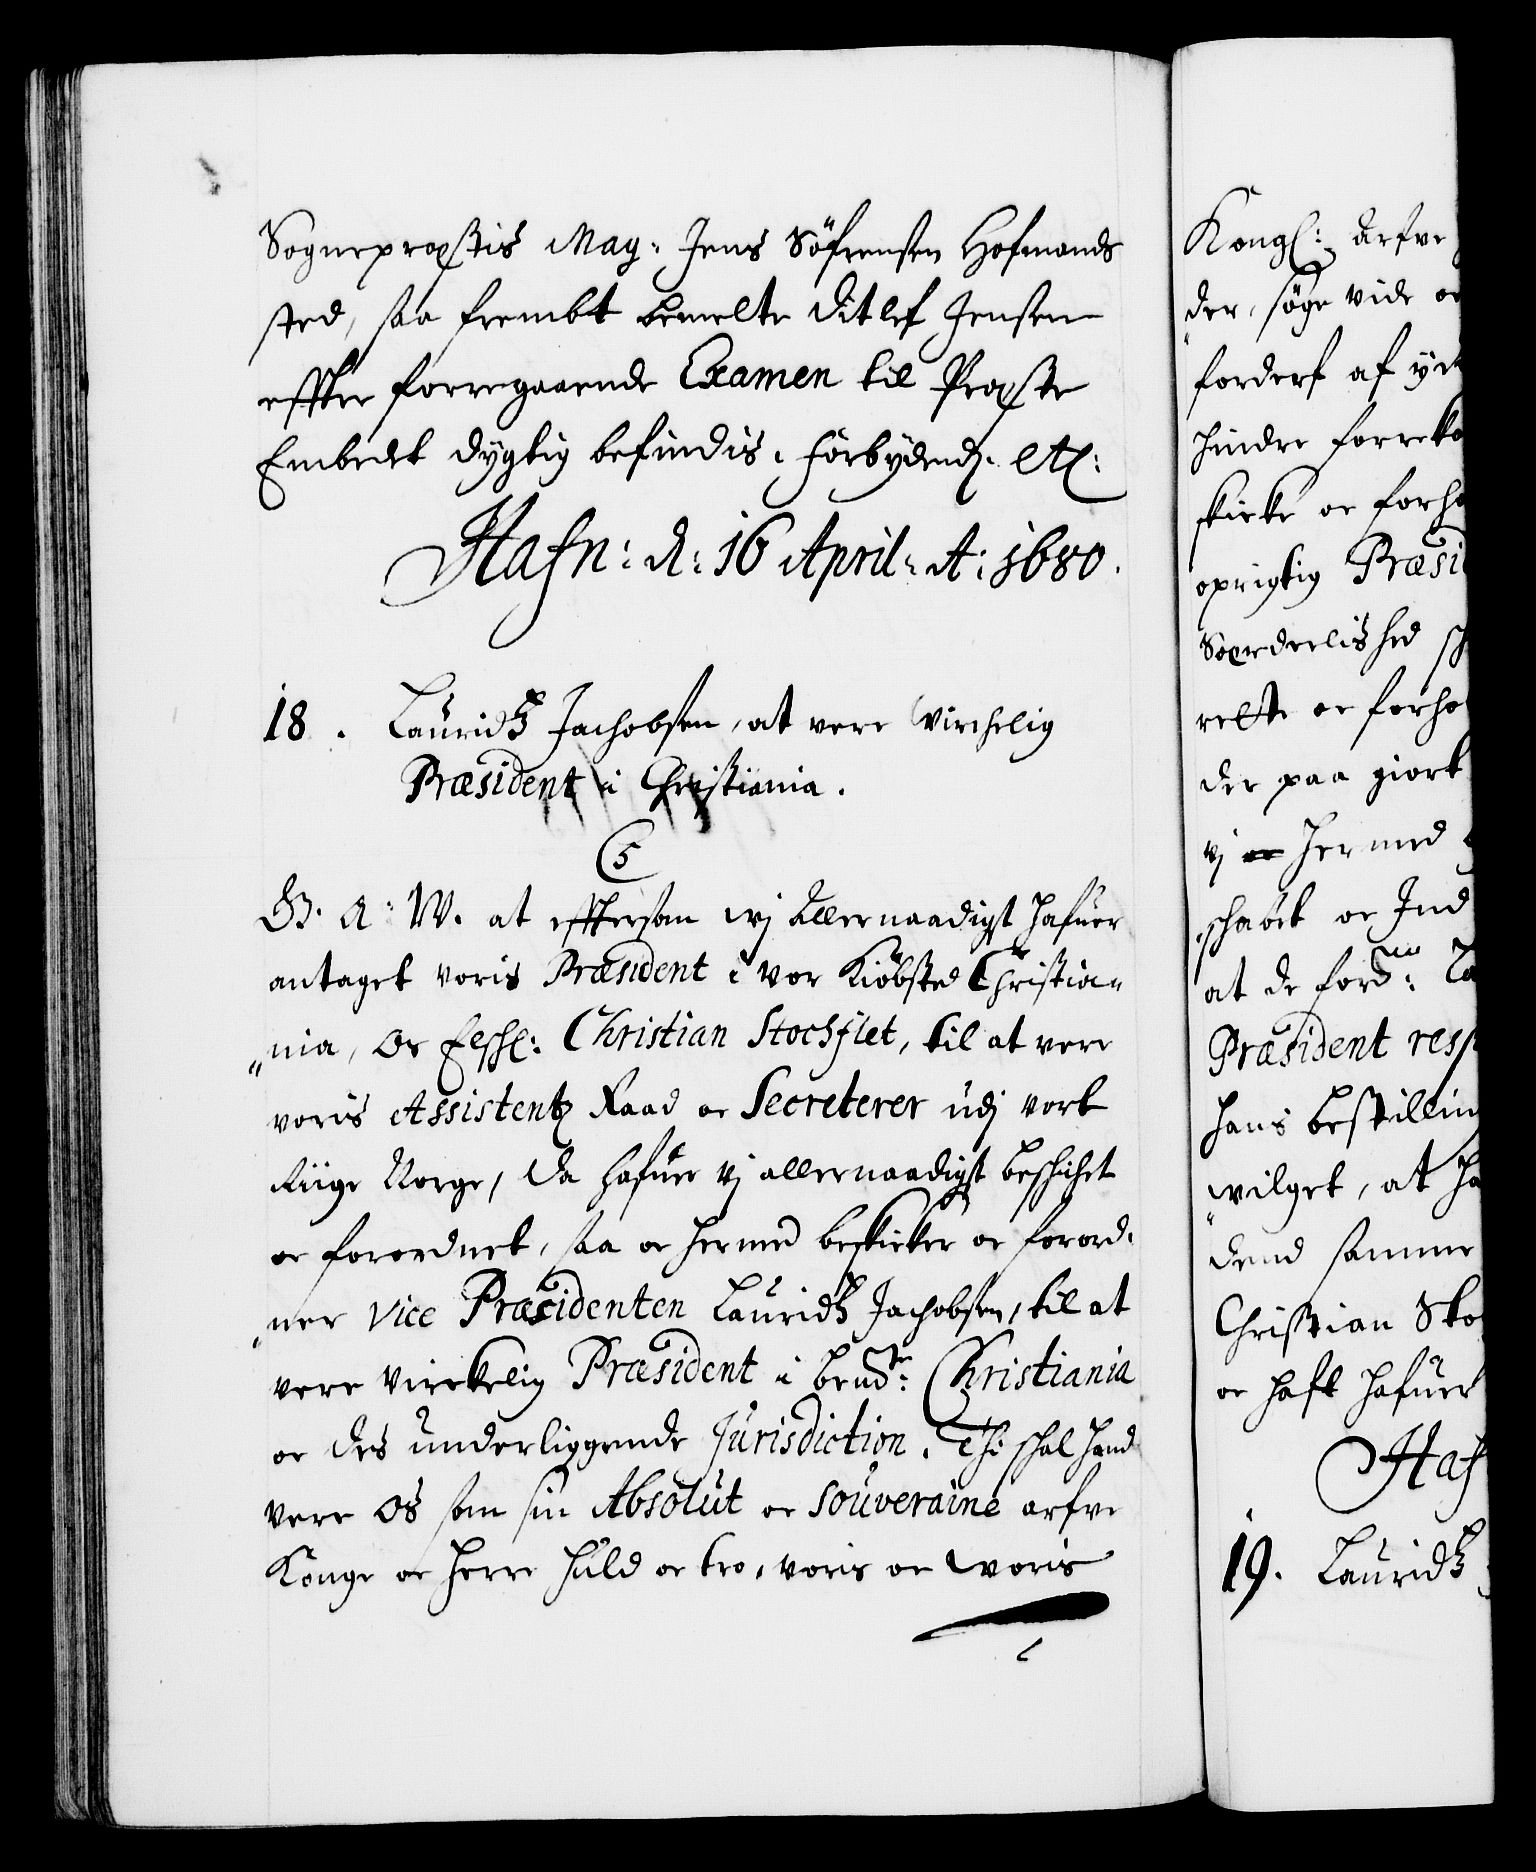 Sogneprophstis Mag: Jens Söfrensen Hofmands
sted, saa frembt bemelte Ditlef Jensen
effter forregaaende Examen til Propste
Embedet dygtig befindis, forbydend. etc:
Hafn: d: 16 April. A: 1680.
18. Lauridtz Jachobsen, at vere virchelig
Præsident i Christiania.
C5
G. A: W. at effterson wj allernaadigst hafuer
antaget voris Præsident i vor Kiöbsted Christia-
nia, Os Elshl: Christian Stochflet, til at vere
voris Assistentz Raad oc Secreterer udj vort
Riige Norge, da hafuer vj allernaadigst beschichet
oc forordnet, saa oc hermed beskicker oc forord-
ner Vice Præsidenten Lauridtz Jachobsen, til at
vere virckelig Præsident i bemdte: Christiania
oc des underliggende Jurisdiction. Thi schal hand
vere Os som sin Absolut oc Souveraine arfve
Konge oc herre huld oc tro, voris oc woris
Kongl: Arfve
der, söge vide oc
forderf af yd
hindre forreko
skicke oc forho
oprigtig Præsi
Soerdelished sch
rette oc forho
der paa giort
vj oc hermed
schaöct oc Ind
at de fordne: La
Præsident resp
hans bestilling
wilget, at ha
dend samme
Christian Sto
oc haft hafuer
Haf
19. Lauridtz